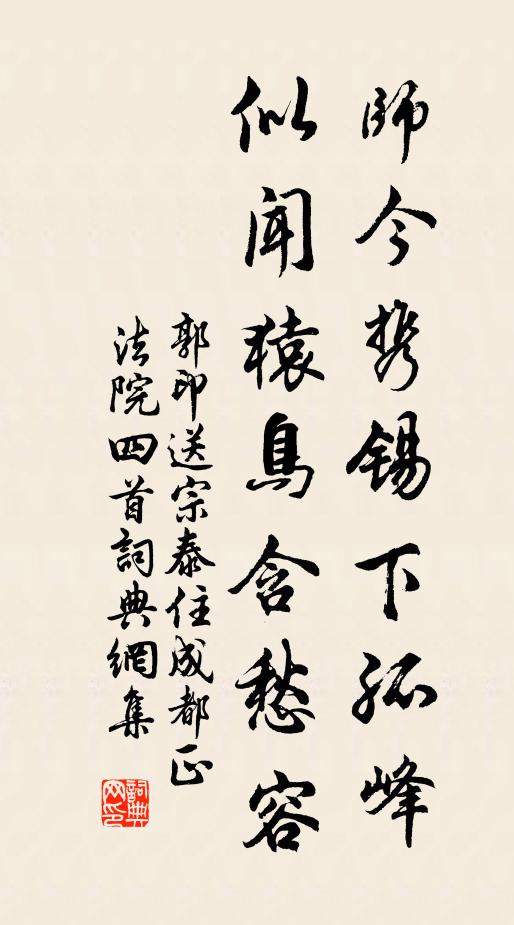 師今携锡下孤峰
似闻猿鳥含愁容
郭印送宗泰住成都正
法院四首詞典網集
詞典
网印